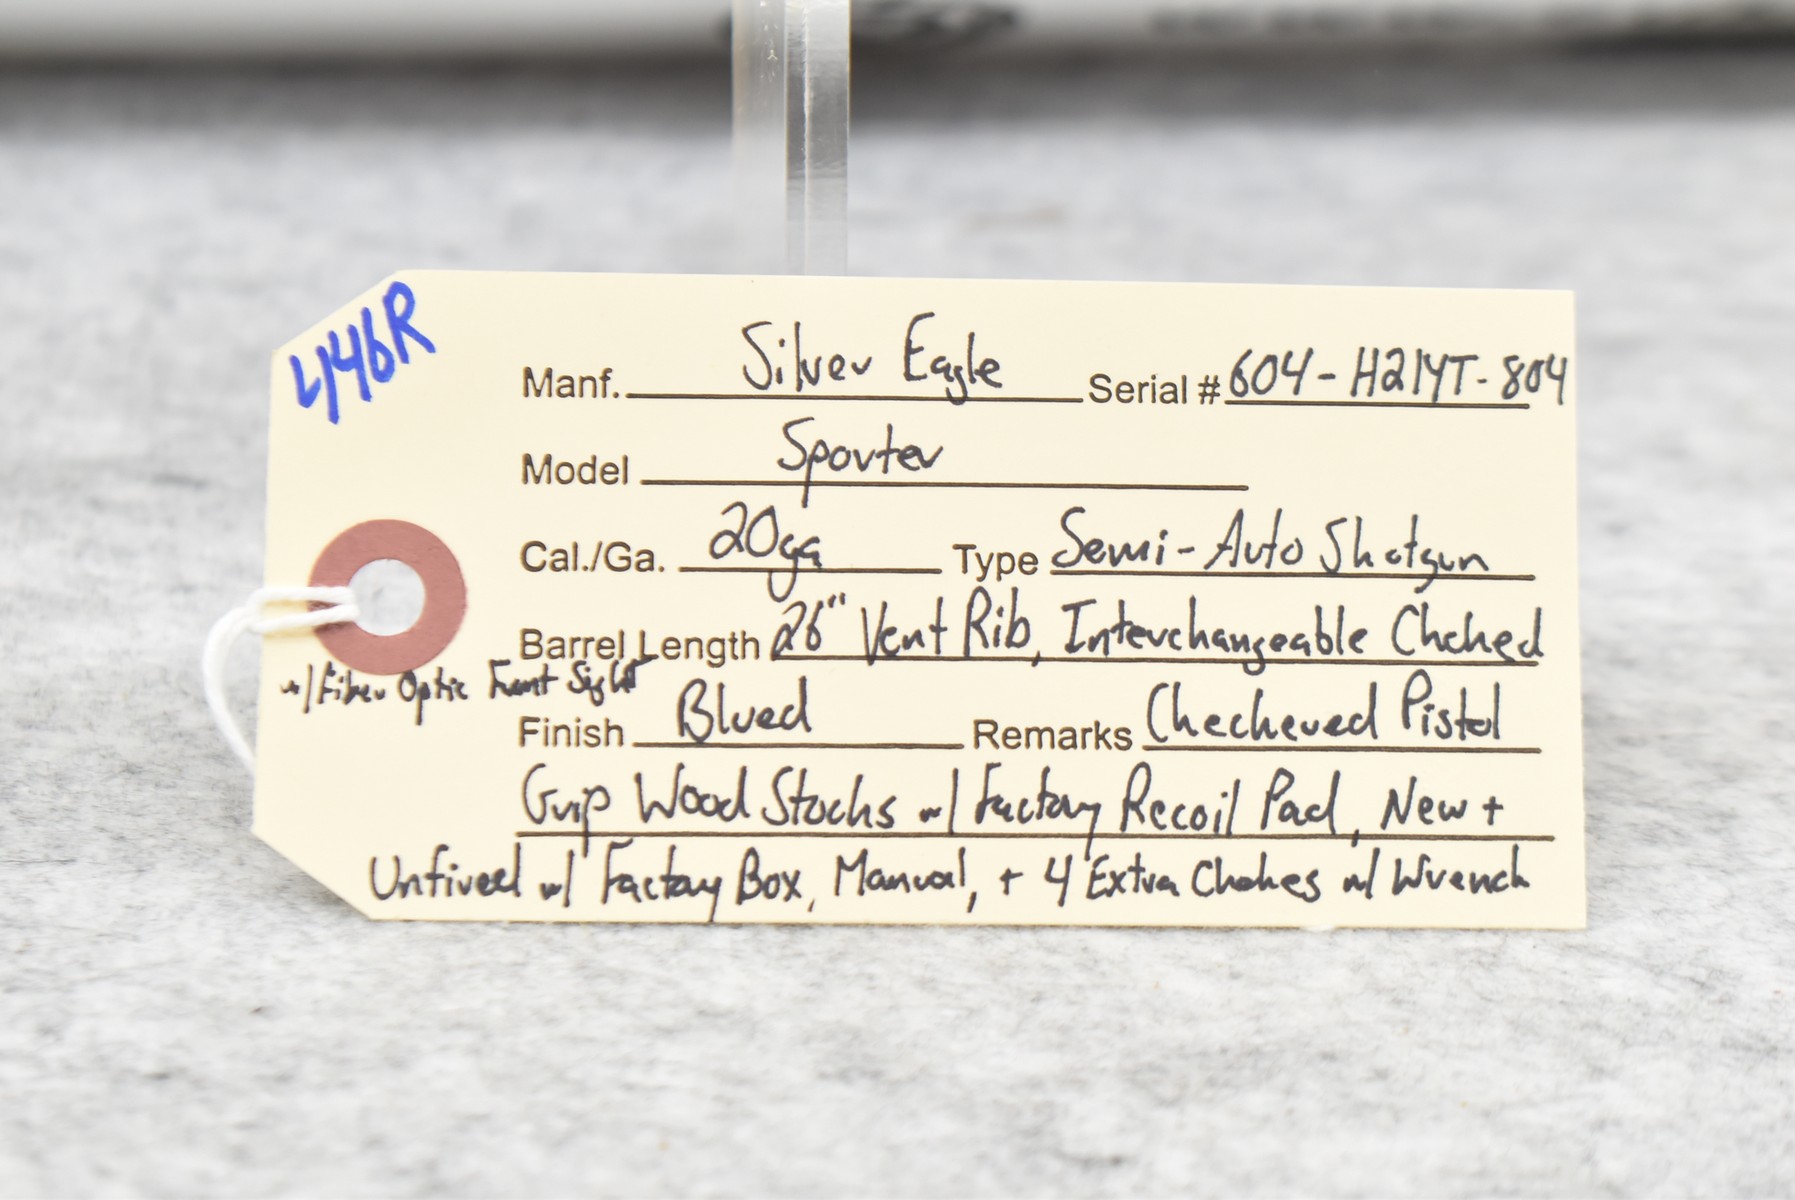 446R
Manf. Silver Eagle Serial # 604-H21YT-804
Model Sporter
Cal./Ga. 20ga Type Semi-Auto Shotgun
Barrel Length 26" Vent Rib, Interchangeable Choked
w/ Fiber Optic Front Sight
Finish Blued Remarks Checkered Pistol
Grip Wood Stocks w/ Factory Recoil Pad, New +
Unfired w/ Factory Box, Manual, + 4 Extra Chokes w/ Wrench